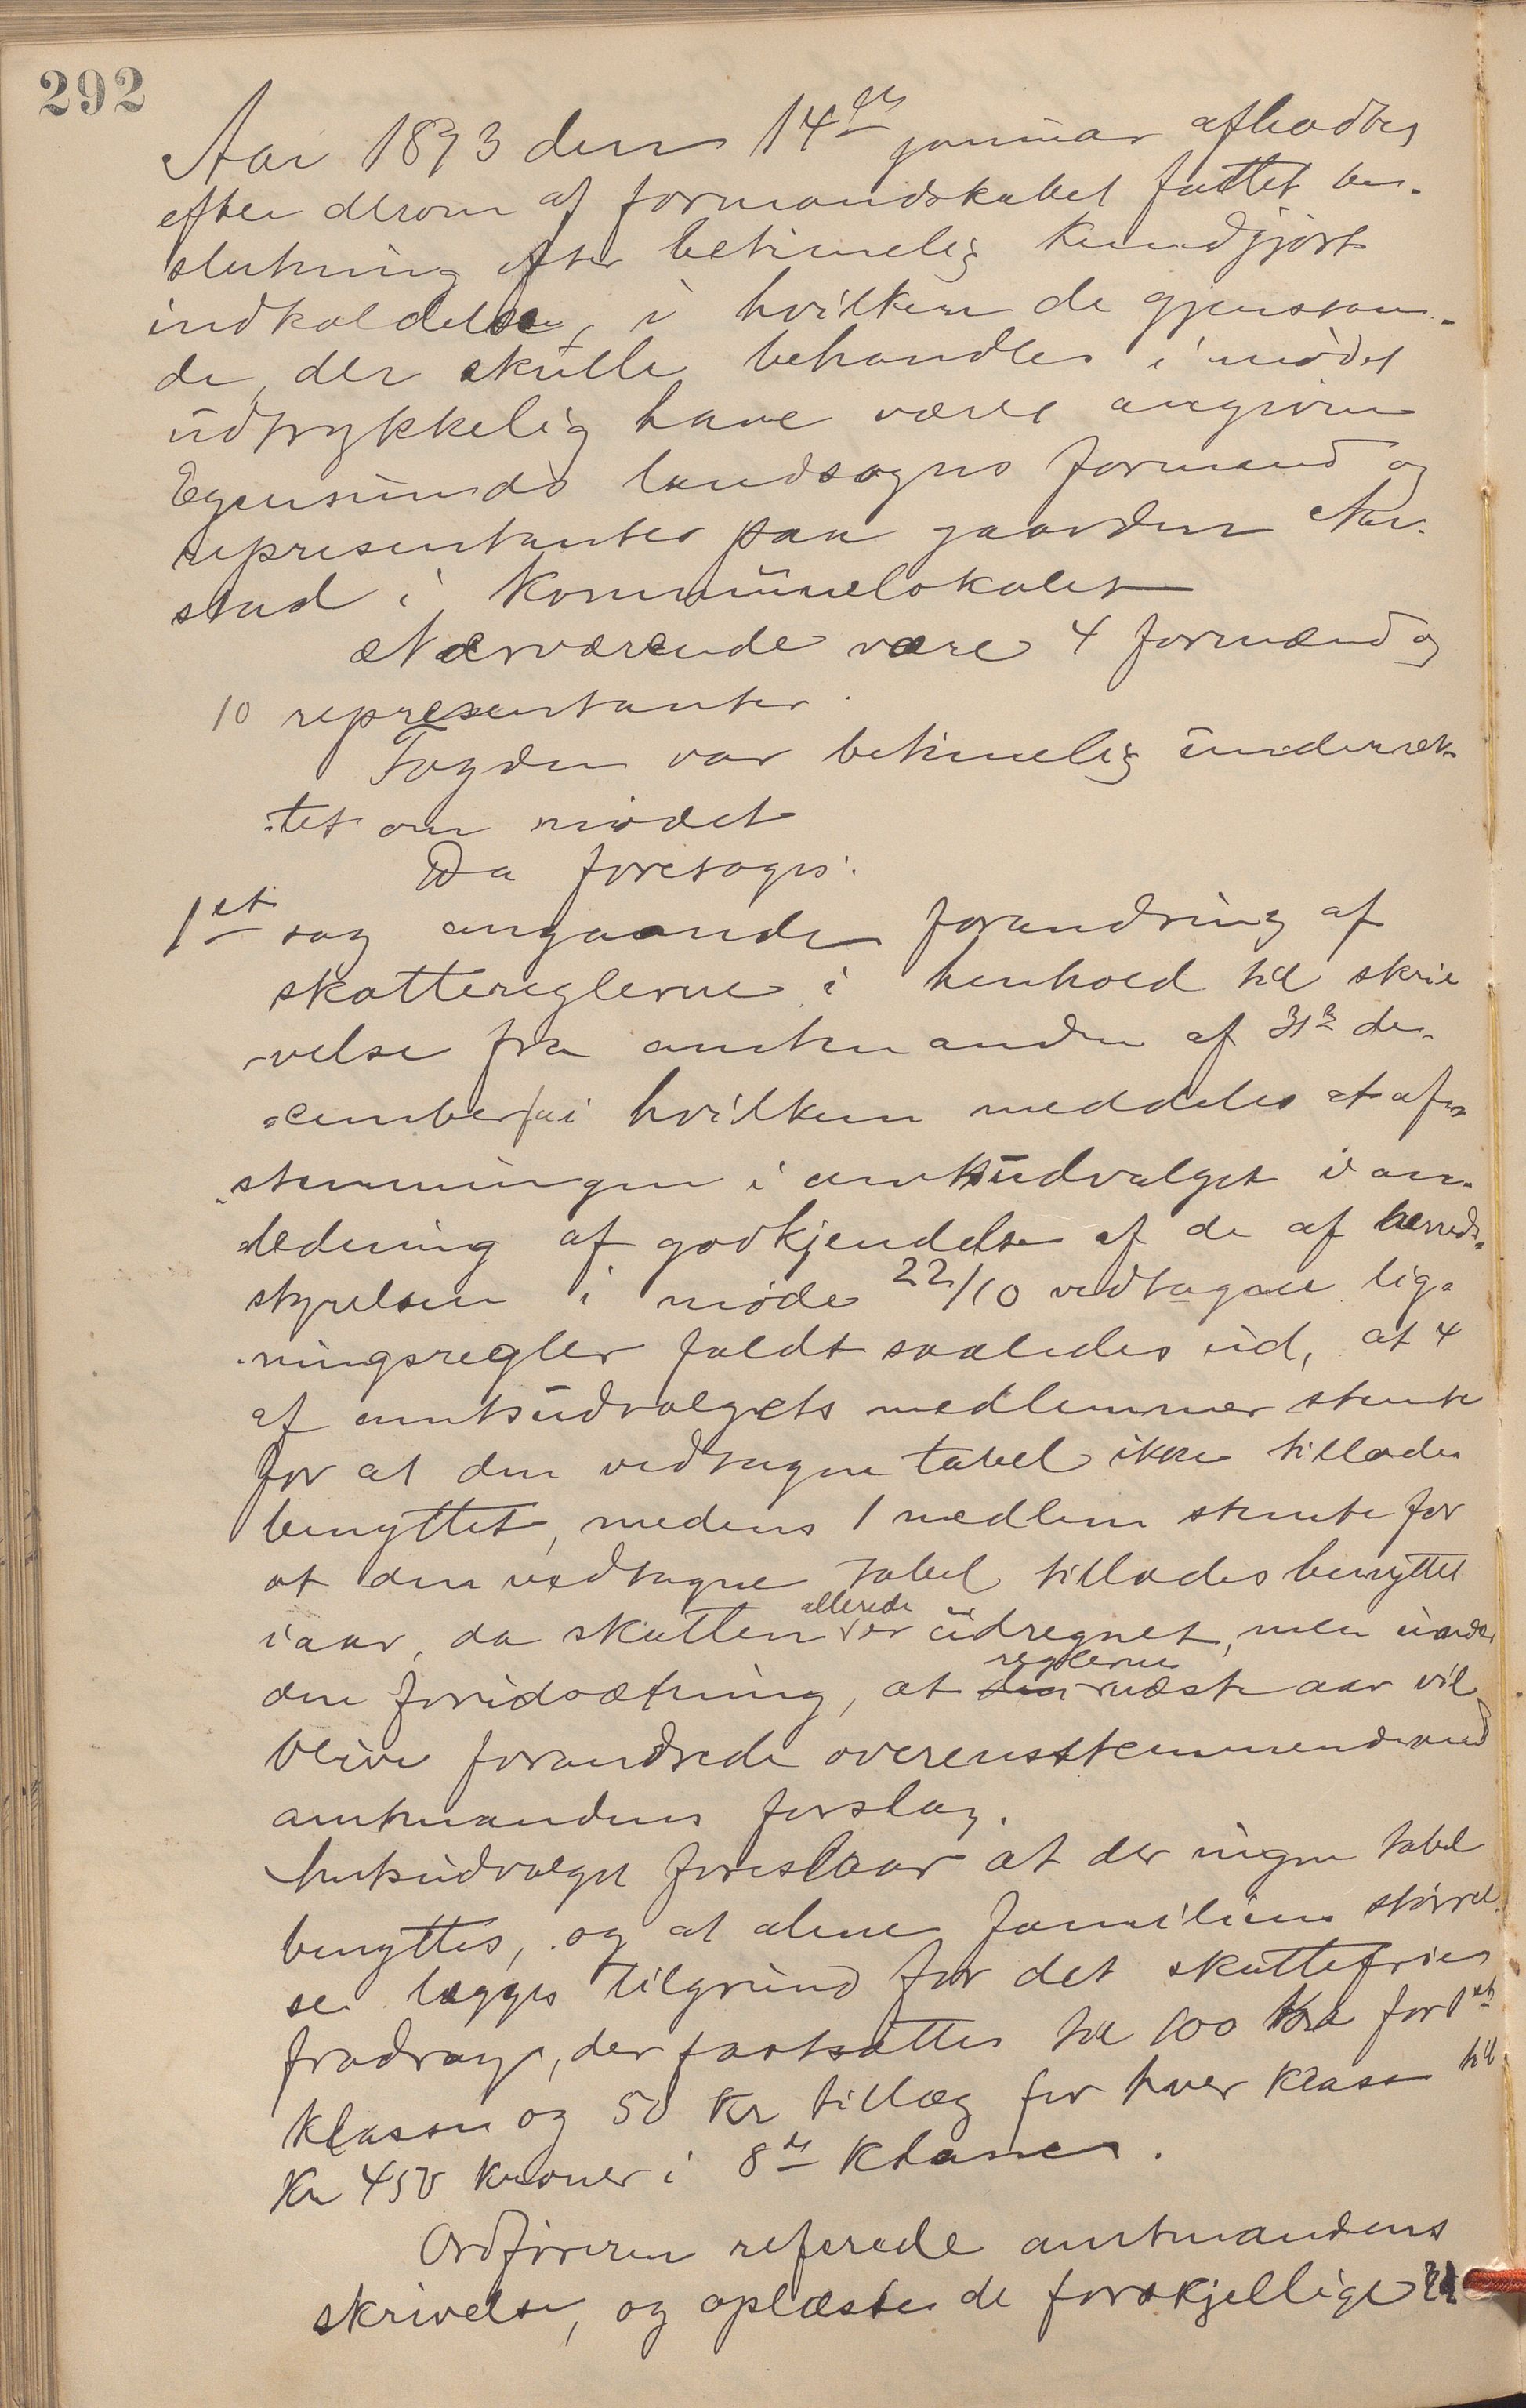 292
Aar 1893 den 14de januar afholdtes
efter derom af formandskabet fattet be-
slutning efter betimelig kundgjort
indkaldelse, i hvilken de gjenstan-
de, der skulle behandles i mødet
udtrykkelig have været angivne
Egersunds landsogns formænd og
repræsentanter paa gaarden Aar-
stad i kommunelokalet
Nærværende være 4 formænd og
10 representanter.
Fogden var betimelig underret-
tet om mødet
Da foretoges:
1et sag angaaende forandring af
skattereglerne i henhold til skri-
velse fra amtmanden af 31te de-
cember i hvilken meddeles at af-
stemningen i amtsudvalget i an-
ledning af godkjendelse af de af herreds-
styrelsen i møde 22/10 vedtagne lig-
ningsregler faldt saaledes ud, at 4
af amtsudvalgets medlemmer stemte
for at den vedtagne tabel ikke tillades
benyttet, medens 1 medlem stemte for
at den vedtagne tabel tillades benyttet
iaar, da skatten allerede er udregnet, men under
den foridsætning, at reglerne næste aar vil
blive forandrede overensstemmende med
amtmandens forslag.
Amtsudvalget foreslaar at der ingen tabel
benyttes, og at alene familiens størrel-
se lægges tilgrund for det skattefrie
fradrag, der fastsættes til 100 Kr for 1ste
klasse og 50 Kr tillæg for hver klasse til
Kr 450 kroner i 8de klasse.
Ordføreren referede amtmandens
skrivelse, og oplæste de forskjellige